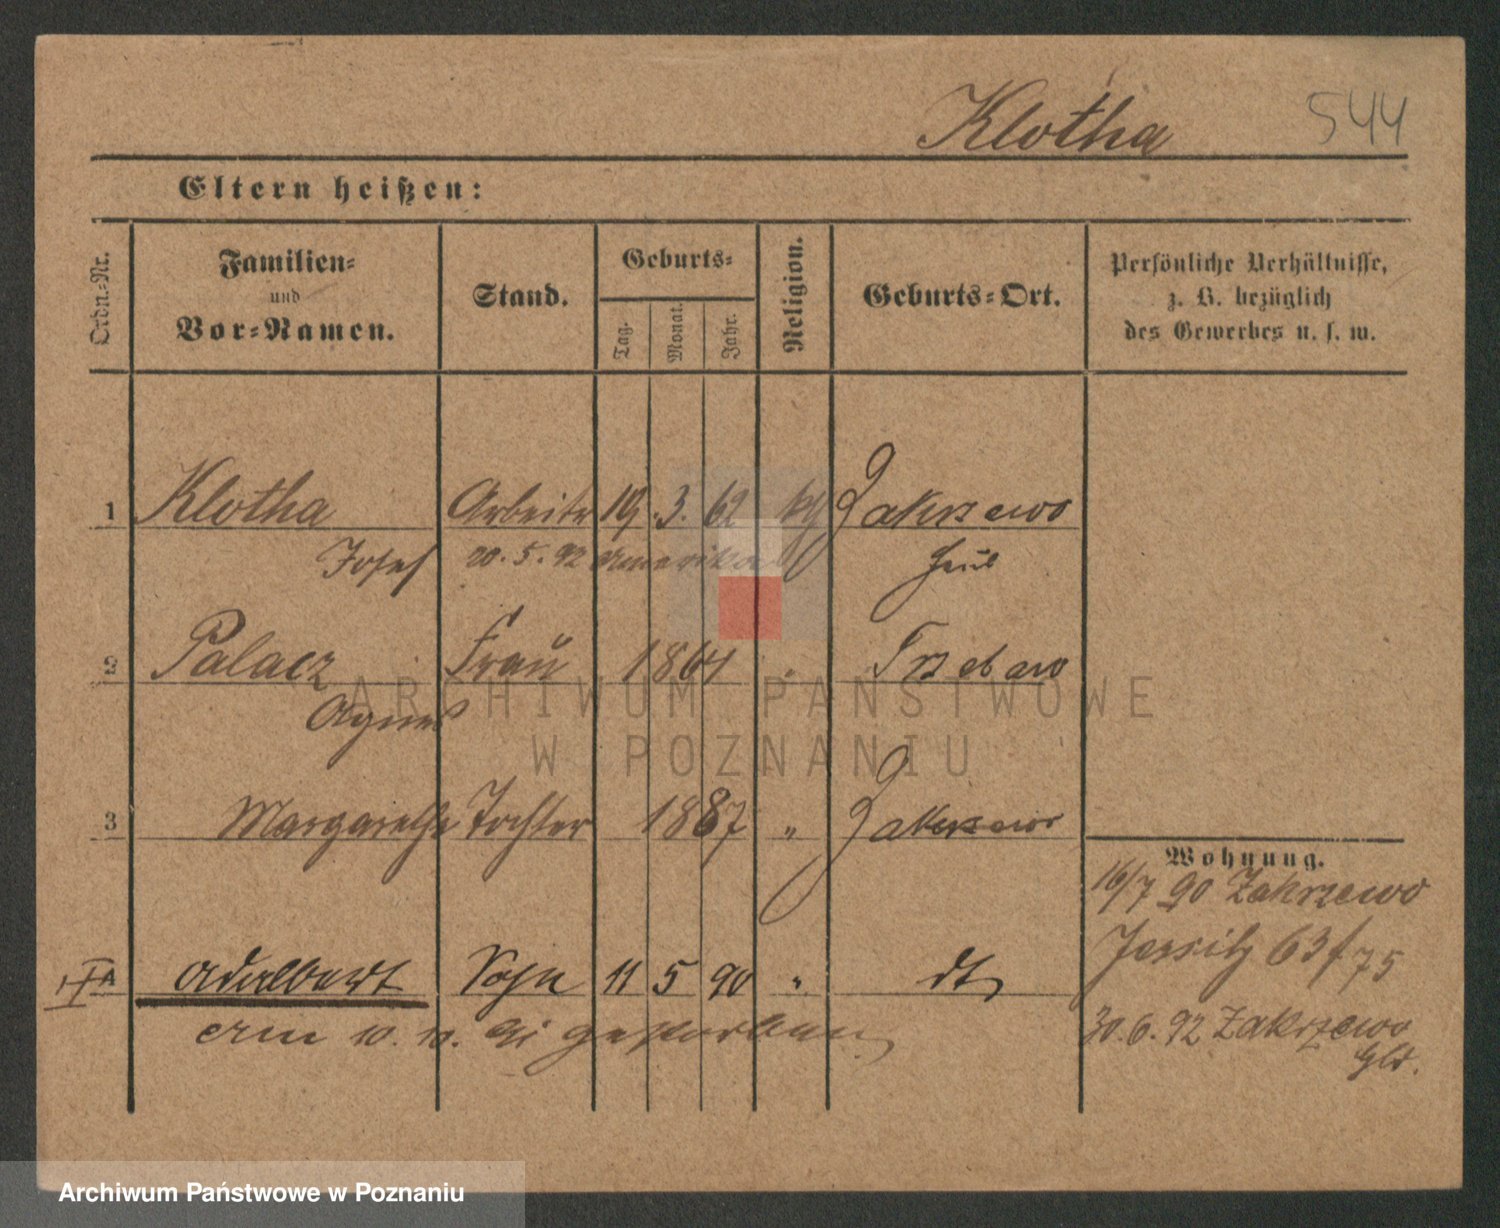 Klotha 544
Eltern heißen:
Ordn.-Nr.
Familien-
und
Vor-Namen.
Stand.
Geburts-
Tag.
Monat.
Jahr.
Religion.
Geburts-Ort.
Persönliche Verhältnisse,
z. B. bezüglich
des Gewerbes u. s. w.
1 Klotha Arbeiter 19. 3. 62 kth Zakrzewo
Josef 20. 5. 92 Amerika
2 Palacz Frau 1864 " Trzebawo
Agnes
ARCHIWUM PAŃSTWOWE
W POZNANIU
3 Margarethe Tochter 1887 " Zakrzewo
Wohnung.
16/7 90 Zakrzewo
Jersitz 63 f 75
Adalbert Sohn 11 5 90 " dto
am 10. 10. 91 gestorben
30. 6. 92 Zakrzewo
Archiwum Państwowe w Poznaniu